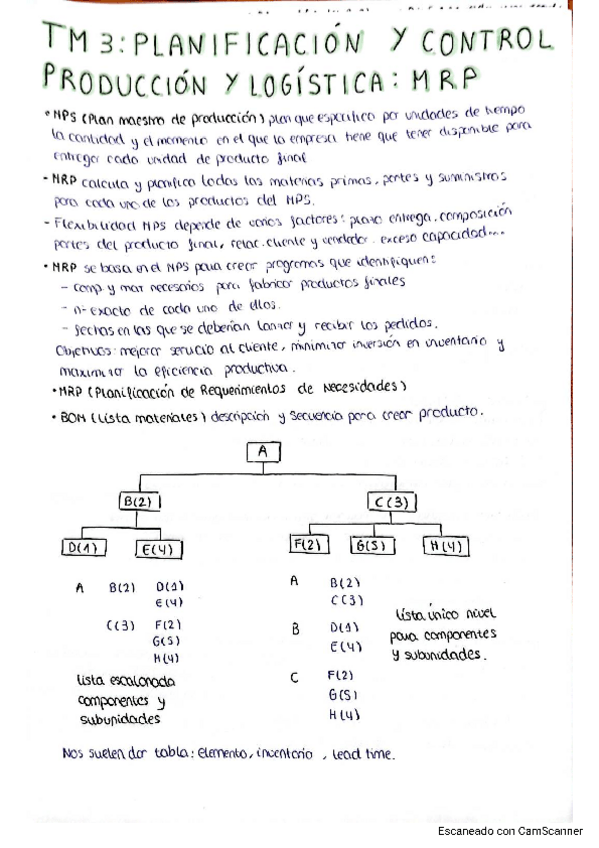 TM 3: PLANIFICACIÓN Y CONTROL
PRODUCCIÓN Y LOGÍSTICA: MRP
• MPS (Plan maestro de producción) plan que especifica por unidades de tiempo
la cantidad y el momento en el que la empresa tiene que tener disponible para
entregar cada unidad de producto final
- MRP calcula y planifica todas las materias primas, partes y suministros
para cada uno de los productos del MPS.
- Flexibilidad MPS depende de varios factores: plazo entrega, composición
partes del producto final, relac. cliente y vendedor, exceso capacidad...
• MRP se basa en el MPS para crear programas que identifiquen:
- comp y mat necesarios para fabricar productos finales
- nº exacto de cada uno de ellos.
- fechas en las que se deberían lanzar y recibir los pedidos.
Objetivos: mejorar servicio al cliente, minimizar inversión en inventario y
maximizar la eficiencia productiva.
• MRP (Planificación de Requerimientos de Necesidades)
• BOM (Lista materiales) descripción y secuencia para crear producto.
A
B(2) C(3)
D(1) E(4) F(2) G(5) H(4)
A B(2) D(1)
E(4)
C(3) F(2)
G(5)
H(4)
lista escalonada
componentes y
subunidades
A B(2)
C(3)
B D(1)
E(4)
C F(2)
G(5)
H(4)
lista único nivel
para componentes
y subunidades.
Nos suelen dar tabla: elemento, inventario, lead time.
Escaneado con CamScanner